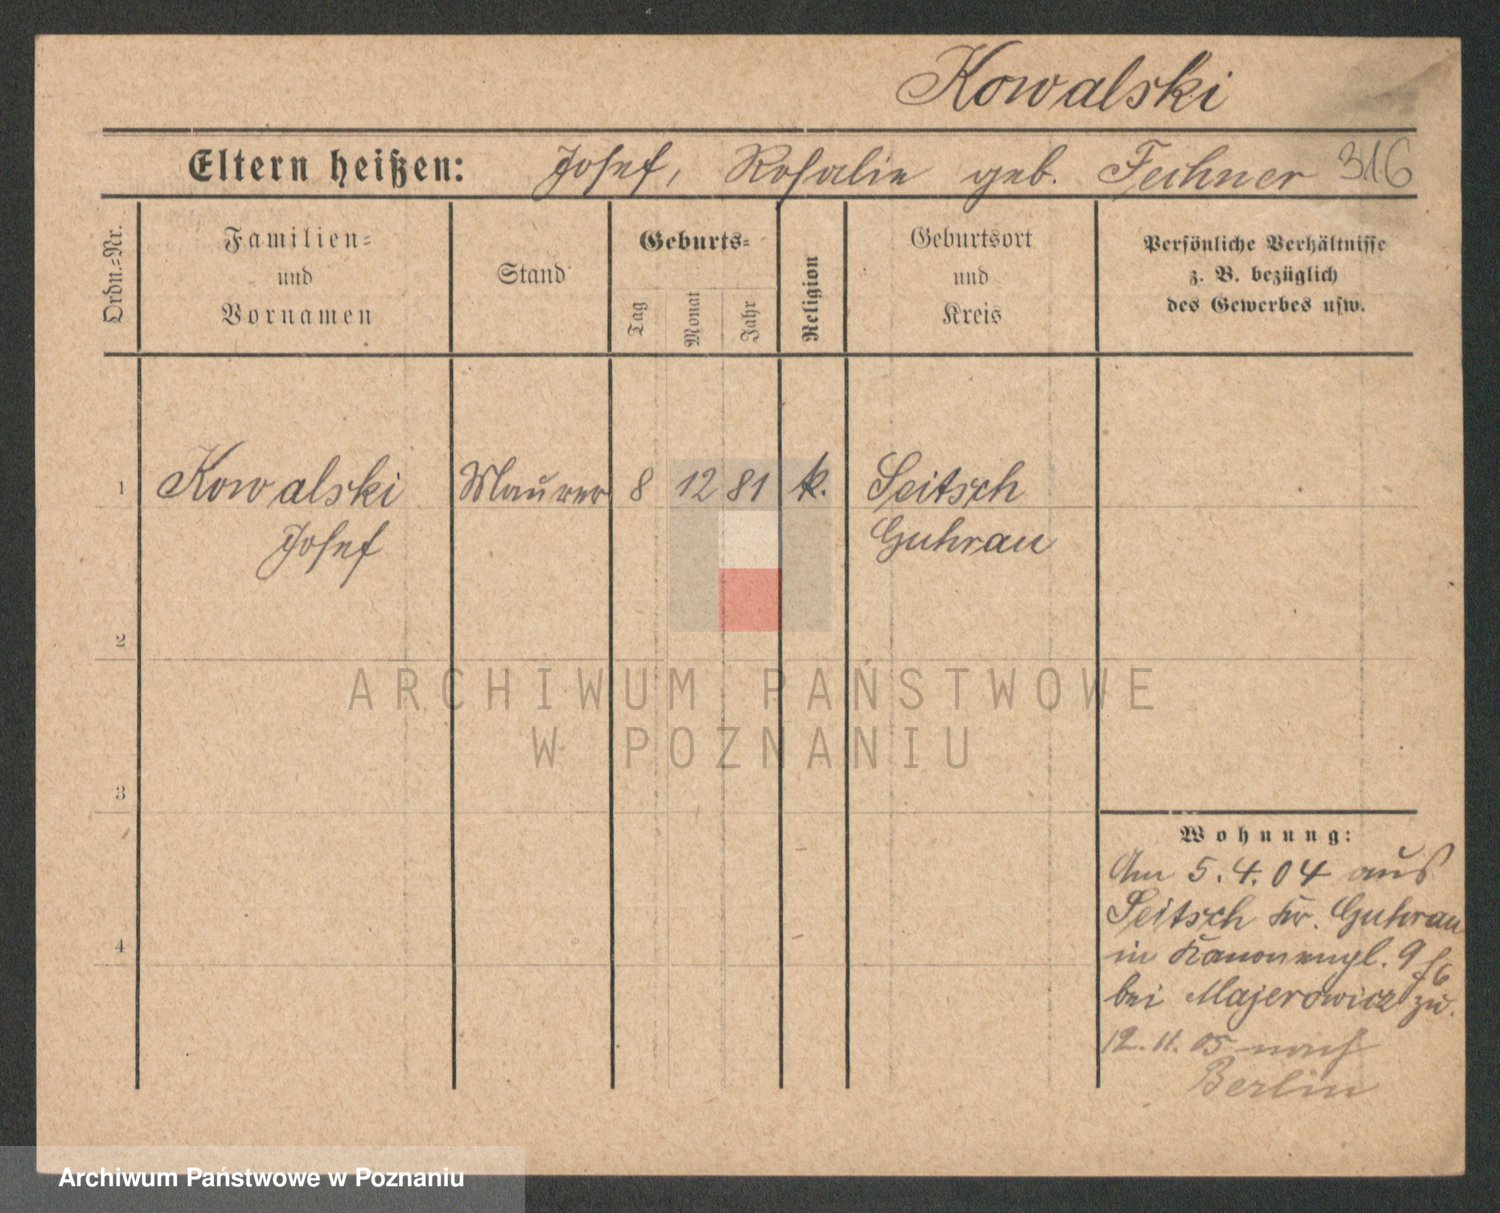 Kowalski
Eltern heißen: Josef, Rosalie geb. Fechner 316
Ordn.=Nr.
Familien=
und
Vornamen
Stand
Geburts=
Tag
Monat
Jahr
Religion
Geburtsort
und
Kreis
Persönliche Verhältnisse
z. B. bezüglich
des Gewerbes usw.
1 Kowalski Maurer 8 12 81 k. Seitsch
Josef Guhrau
2
ARCHIWUM PAŃSTWOWE
W POZNANIU
3
4
Wohnung:
Am 5.4.04 aus
Seitsch Kr. Guhrau
in Kanonengl. 9
bei Majerowicz zu.
12.11.05 nach
Berlin
Archiwum Państwowe w Poznaniu